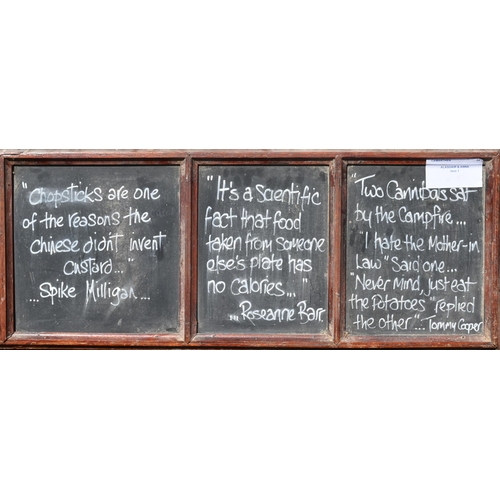 "Chopsticks are one
of the reasons the
chinese didn't invent
custard..."
...Spike Milligan...
"It's a Scientific
fact that food
taken from someone
else's plate has
no calories..."
...Roseanne Barr
"Two Cannibals sat
by the Campfire...
I hate the Mother-in
Law" Said one...
Never mind, just eat
the Potatoes" replied
the other"... Tommy Cooper